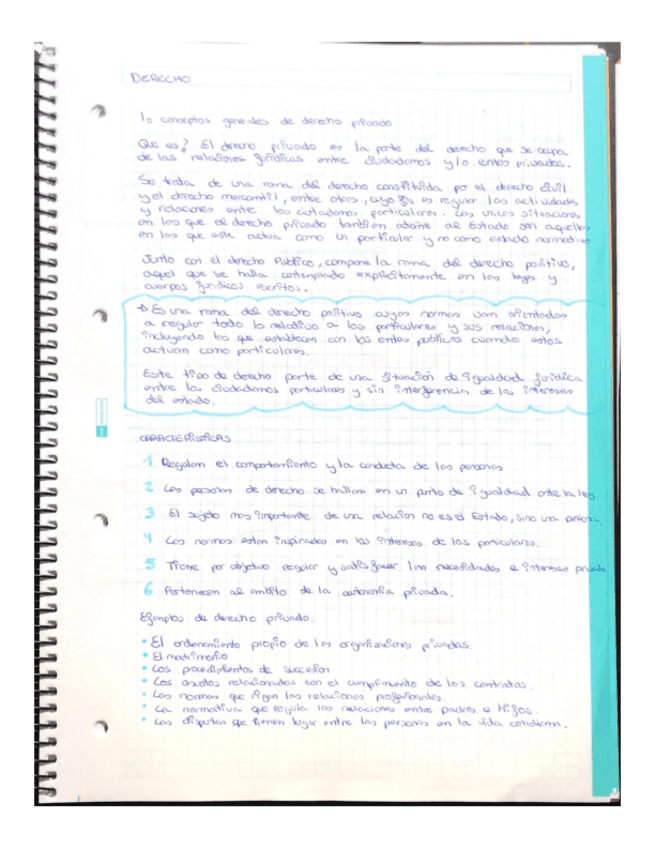 DERECHO
1. conceptos generales de derecho privado
Que es? El derecho privado es la parte del derecho que se ocupa
de las relaciones jurídicas entre ciudadanos y/o entes privados.
Se trata de una rama del derecho constituida por el derecho civil
y el derecho mercantil, entre otros, cuyo fin es regular las actividades
y relaciones entre los ciudadanos particulares. Las unicas situaciones
en las que el derecho privado tambien atañe al Estado son aquellas
en las que este actua como un particular y no como estado normativo
Junto con el derecho Publico, compone la rama del derecho positivo,
aquel que se halla contemplado explícitamente en las leyes y
cuerpos jurídicos escritos.
→ Es una rama del derecho positivo cuyas normas van orientadas
a regular todo lo relativo a los particulares y sus relaciones,
incluyendo las que establecen con los entes públicos cuando estos
actuan como particulares.
Este tipo de derecho parte de una situación de igualdad jurídica
entre los ciudadanos particulares y sin interferencia de los intereses
del estado.
CARACTERÍSTICAS
1 Regulan el comportamiento y la conducta de las personas
2 Las personas de derecho se hallan en un punto de igualdad ante la ley.
3 El sujeto mas importante de una relación no es el Estado, sino una persona.
4 Las normas estan inspiradas en los intereses de los particulares.
5 Tiene por objetivo regular y satisfacer las necesidades e intereses privados
6 Pertenecen al ambito de la autonomía privada.
Ejemplos de derecho privado.
• El ordenamiento propio de las organizaciones privadas.
• El matrimonio
• Los procedimientos de sucesion
• Los asuntos relacionados con el cumplimiento de los contratos.
• Las normas que rigen las relaciones profesionales.
• La normativa que regula las relaciones entre padres e hijos.
• Las disputas que tienen lugar entre las personas en la vida cotidiana.